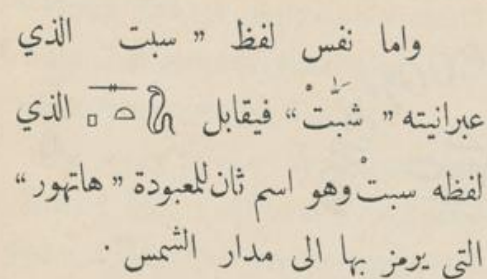 واما نفس لفظ „ سبت الذي
عبرانيته „ شَبَّتْ “ فيقابل 𓊃𓊪𓏏𓆗 الذي
لفظه سبتْ وهو اسم ثان للمعبودة „ هاتهور “
التي يرمز بها الى مدار الشمس ·